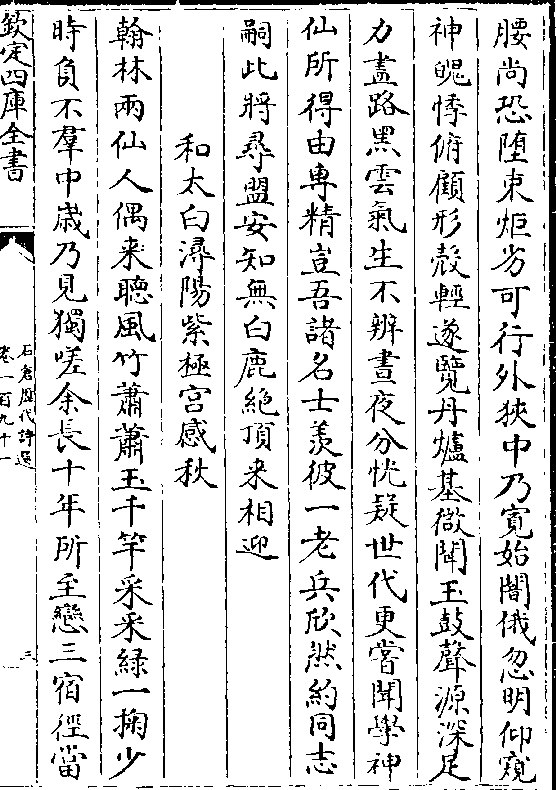 腰尚恐堕束炬劣可行外狹中乃寛始闇俄忽明仰窺
神魄悸俯顧形殻輕遂覽丹爐基微聞玉鼓聲源深足
力盡路黒雲氣生不辨晝夜分恍疑世代更嘗聞學神
仙所得由専精豈吾諸名士羡彼一老兵欣然約同志
嗣此將尋盟安知無白鹿絶頂来相迎
和太白潯陽紫極宫感秋
翰林兩仙人偶来聽風竹蕭蕭玉千竿采采緑一掬少
時負不羣中歳乃見獨嗟余長十年所至戀三宿徑當
欽定四庫全書
石倉歴代詩選
卷一百九十一
三